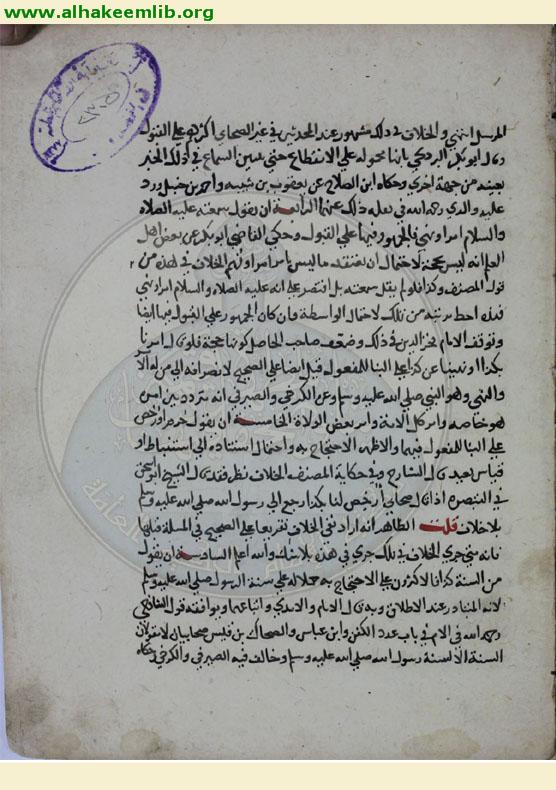 www.alhakeemlib.org
المرسل انتهي والخلاف في ذلك مشهور عند المحدثين في غير الصحابي اكثرهم علي القبول
وقال ابو بكر البرديجي بانها محمولة علي الانقطاع حتي يتبين السماع في ذلك الخبر
بعينه من جهة اخري وحكاه ابن الصلاح عن يعقوب بن شيبة واحمد بن حنبل ورد
عليه والدي رحمه الله في نقله ذلك عنهما الرابعة ان يقول سمعته عليه الصلاة
والسلام امر او نهي فالجمهور فيها علي القبول وحكي القاضي ابو بكر عن بعض اهل
العلم انه ليس بحجة لاحتمال ان يعتقد ما ليس بامر امرا وفهم الخلاف في هذه من
قول المصنف وكذا فلو لم يقل سمعته بل اقتصر علي انه عليه الصلاة والسلام امر او نهي
فهذه احط مرتبة من تلك لاحتمال الواسطة وان كان الجمهور علي القبول فيها ايضا
وتوقف الامام فخر الدين في ذلك وضعف صاحب الحاصل كونها حجة فلو قال امرنا
بكذا او نهينا عن كذا علي البنا للمفعول قبل ايضا علي الصحيح لانصرافه الي من له الامر
والنهي وهو النبي صلي الله عليه وسلم وعن الكرخي والصيرفي انه متردد بين امر
هو خاصه وامر كل الامة وامر بعض الولاة الخامسة ان يقول حرم او رخص
علي البنا للمفعول فيهما والاظهر الاحتجاج به واحتمال استناده الي استنباط او
قياس بعيد قال الشارح وفي حكاية المصنف الخلاف نظر فقد قال الشيخ ابو اسحق
في التبصرة اذا قال صحابي ارخص لنا بكذا رجع الي رسول الله صلي الله عليه وسلم
بلا خلاف قلت الظاهر انه اراد نفي الخلاف تفريعا علي الصحيح في المسلة قبلها
فانه متي جري الخلاف في تلك جري في هذه بلا شك والله اعلم السادسة ان يقول
من السنة كذا فالاكثرون علي الاحتجاج به حملا له علي سنة الرسول صلي الله عليه وسلم
لانه المتبادر عند الاطلاق وبه قال الامام والامدي واتباعهما ويوافقه قول الشافعي
رحمه الله في الام في باب عدد الكفن وابن عباس والضحاك بن قيس صحابيان لا يقولان
السنة الا لسنة رسول الله صلي الله عليه وسلم وخالف فيه الصيرفي والكرخي وحكاه